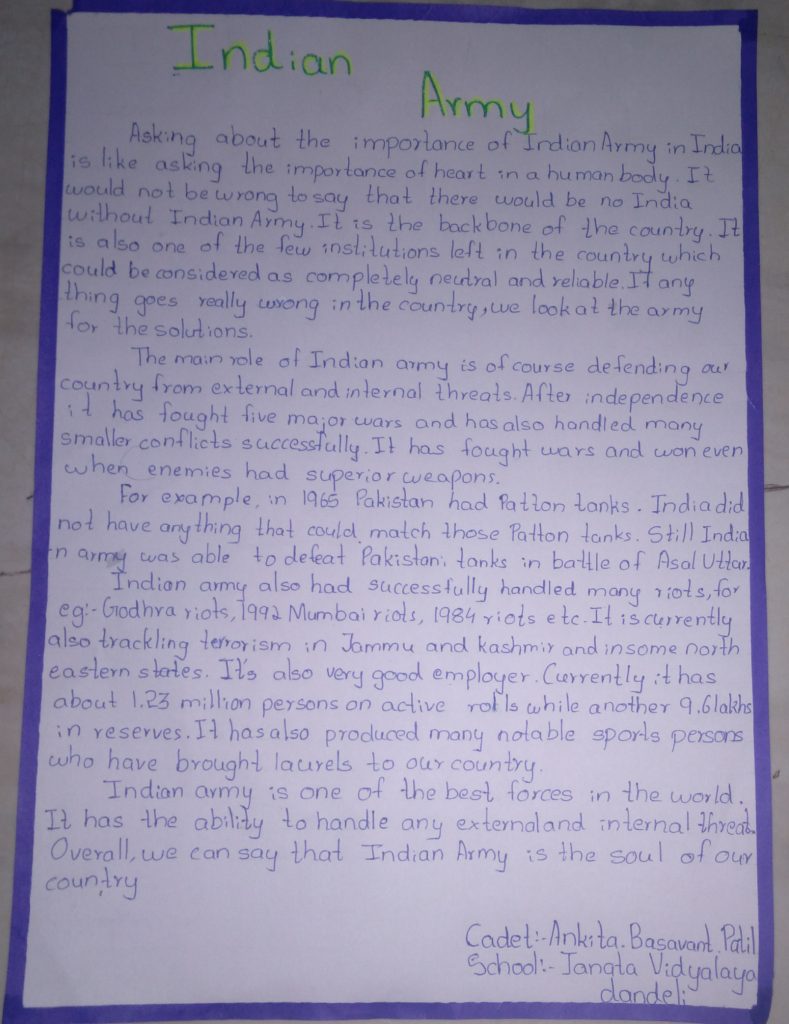 Indian
Army
Asking about the importance of Indian Army in India
is like asking the importance of heart in a human body. It
would not be wrong to say that there would be no India
without Indian Army. It is the backbone of the country. It
is also one of the few institutions left in the country which
could be considered as completely neutral and reliable. If any
thing goes really wrong in the country, we look at the army
for the solutions.
The main role of Indian army is of course defending our
country from external and internal threats. After independence
it has fought five major wars and has also handled many
smaller conflicts successfully. It has fought wars and won even
when enemies had superior weapons.
For example, in 1965 Pakistan had Patton tanks. India did
not have anything that could match those Patton tanks. Still India
n army was able to defeat Pakistani tanks in battle of Asal Uttar.
Indian army also had successfully handled many riots, for
eg:- Godhra riots, 1992 Mumbai riots, 1984 riots etc. It is currently
also trackling terrorism in Jammu and kashmir and in some north
eastern states. It's also very good employer. Currently it has
about 1.23 million persons on active rolls while another 9.6 lakhs
in reserves. It has also produced many notable sports persons
who have brought laurels to our country.
Indian army is one of the best forces in the world.
It has the ability to handle any external and internal threat.
Overall, we can say that Indian Army is the soul of our
country
Cadet:- Ankita. Basavant. Patil
School:- Janata Vidyalaya
dandeli